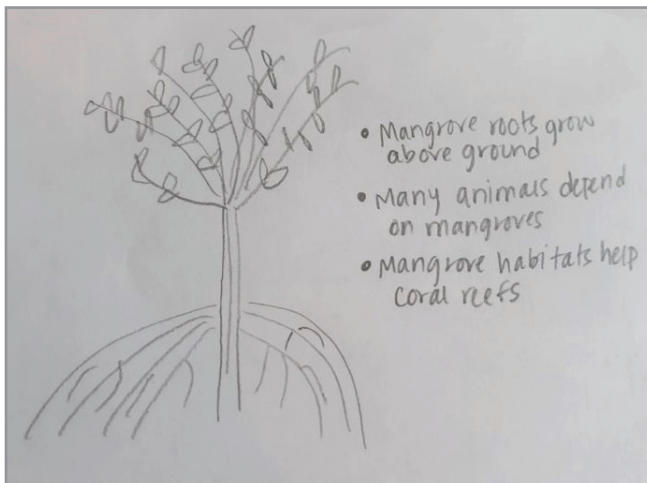 • Mangrove roots grow
above ground
• Many animals depend
on mangroves
• Mangrove habitats help
coral reefs